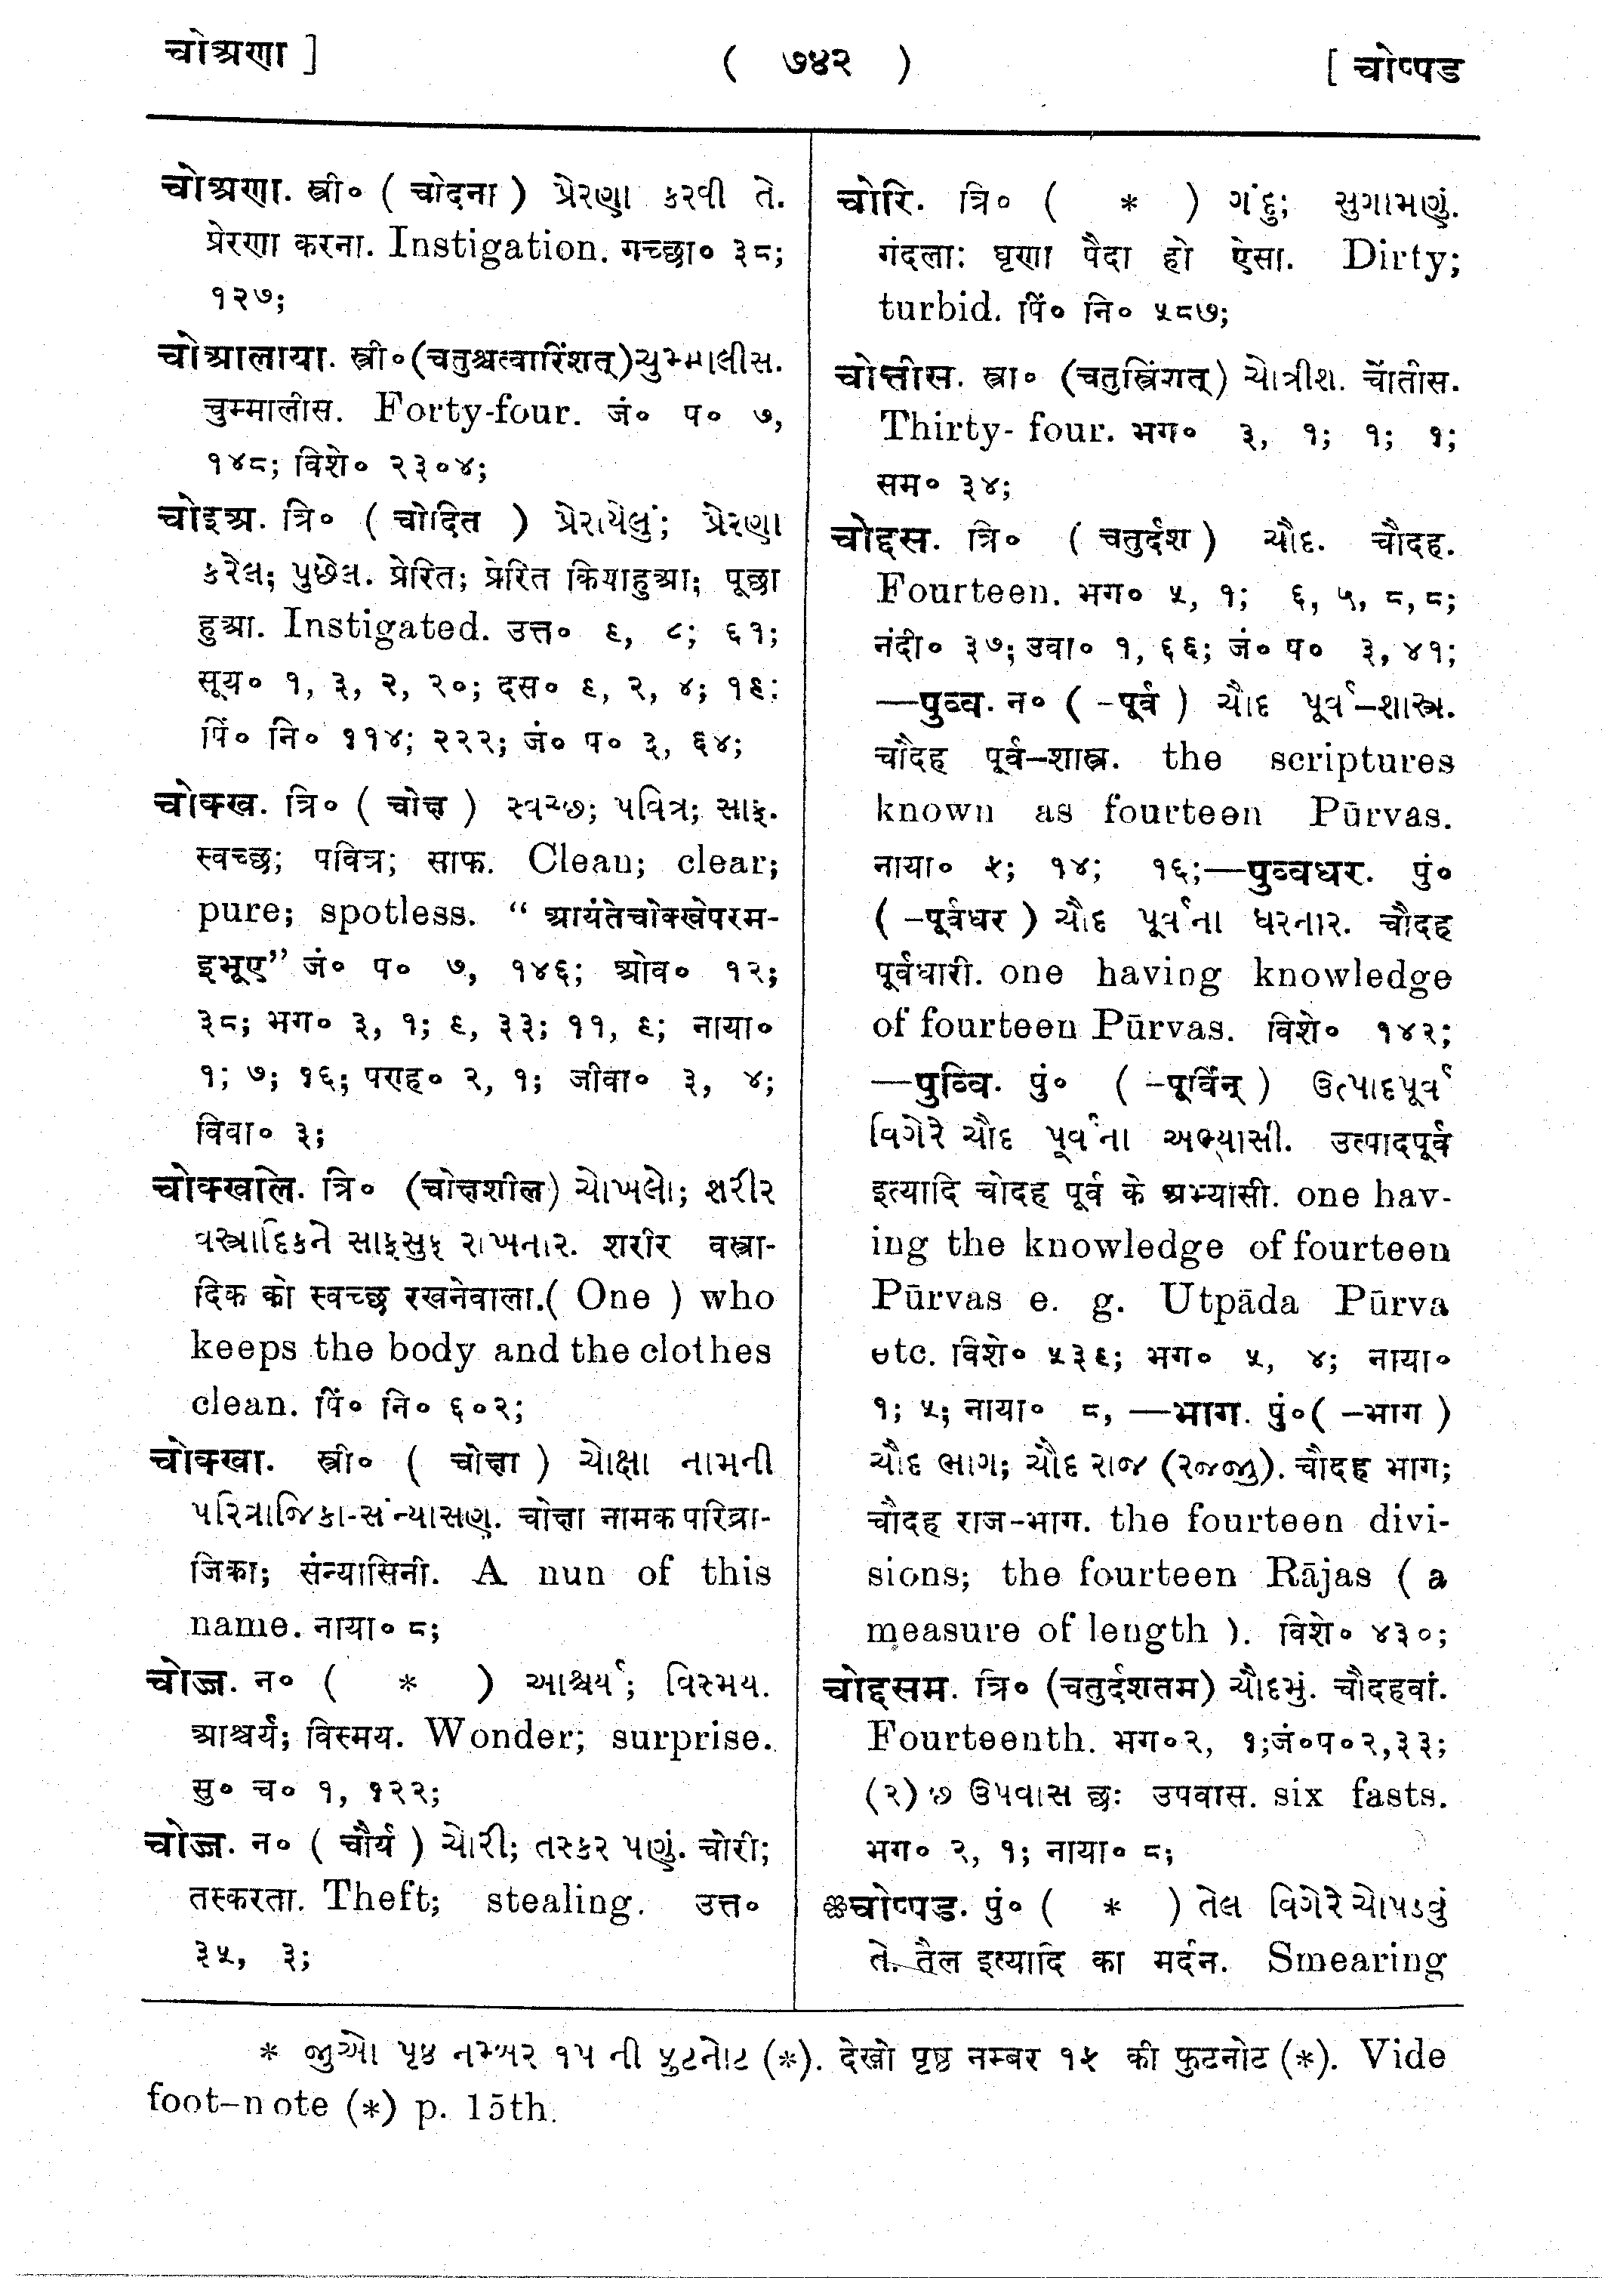 चोअणा ]
( ७४२ )
[ चोप्पड
चोअणा. स्त्री० ( चोदना ) પ્રેરણા કરવી તે.
प्रेरणा करना. Instigation. गच्छा० ३८;
१२७;
चोआलाया. स्त्री०(चतुश्चत्वारिंशत्)ચુમ્માલીસ.
चुम्मालीस. Forty-four. जं० प० ७,
१४८; विशे० २३०४;
चोइअ. त्रि० ( चोदित ) પ્રેરાયેલું; પ્રેરણા
કરેલ; પુછેલ. प्रेरित; प्रेरित कियाहुआ; पूछा
हुआ. Instigated. उत्त० ६, ८; ६१;
सूय० १, ३, २, २०; दस० ६, २, ४; १६:
पिं० नि० ११४; २२२; जं० प० ३, ६४;
चोक्ख. त्रि० ( चोक्ष ) સ્વચ્છ; પવિત્ર; સાફ.
स्वच्छ; पवित्र; साफ. Clean; clear;
pure; spotless. “ आयंतेचोक्खेपरम-
इभूए” जं० प० ७, १४६; ओव० १२;
३८; भग० ३, १; ६, ३३; ११, ६; नाया०
१; ७; १६; पराह० २, १; जीवा० ३, ४;
विवा० ३;
चोक्खलि. त्रि० (चोक्षशील) ચોખલો; શરીર
વસ્ત્રાદિકને સાફસુફ રાખનાર. शरीर वस्त्रा-
दिक को स्वच्छ रखनेवाला.( One ) who
keeps the body and the clothes
clean. पिं० नि० ६०२;
चोक्खा. स्त्री० ( चोक्षा ) ચોક્ષા નામની
પરિત્રાજિકા-સંન્યાસણ. चोक्षा नामक परिव्रा-
जिका; संन्यासिनी. A nun of this
name. नाया० ८;
चोज्ज. न० ( * ) આશ્ચર્ય; વિસ્મય.
आश्चर्य; विस्मय. Wonder; surprise.
सु० च० १, १२२;
चोज्ज. न० ( चौर्य ) ચોરી; તસ્કર પણું. चोरी;
तस्करता. Theft; stealing. उत्त०
३५, ३;
चोरि. त्रि० ( * ) ગંદુ; સુગામણું.
गंदला: घृणा पैदा हो ऐसा. Dirty;
turbid. पिं० नि० ५८७;
चोत्तीस. स्त्रा० (चतुस्त्रिंशत्) ચોત્રીશ. चोंतीस.
Thirty- four. भग० ३, १; १; १;
सम० ३४;
चोद्दस. त्रि० ( चतुर्दश ) ચૌદ. चौदह.
Fourteen. भग० ५, १; ६, ५, ८, ८;
नंदी० ३७; उवा० १, ६६; जं० प० ३, ४१;
—पुव्व. न० ( -पूर्व ) ચૌદ પૂર્વ–શાસ્ત્ર.
चौदह पूर्व–शास्त्र. the scriptures
known as fourteen Pūrvas.
नाया० ५; १४; १६;—पुव्वधर. पुं०
( -पूर्वधर ) ચૌદ પૂર્વના ધરનાર. चौदह
पूर्वधारी. one having knowledge
of fourteen Pūrvas. विशे० १४२;
—पुव्वि. पुं० ( -पूर्विन् ) ઉત્પાદપૂર્વ
વિગેરે ચૌદ પૂર્વના અભ્યાસી. उत्पादपूर्व
इत्यादि चोदह पूर्व के अभ्यासी. one hav-
ing the knowledge of fourteen
Pūrvas e. g. Utpāda Pūrva
etc. विशे० ५३६; भग० ५, ४; नाया०
१; ५; नाया० ८, —भाग. पुं०( –भाग )
ચૌદ ભાગ; ચૌદ રાજ (રજ્જુ). चौदह भाग;
चौदह राज-भाग. the fourteen divi-
sions; the fourteen Rājas ( a
measure of length ). विशे० ४३०;
चोद्दसम. त्रि० (चतुर्दशतम) ચૌદમું. चौदहवां.
Fourteenth. भग०२, १;जं०प०२,३३;
(२) છ ઉપવાસ छः उपवास. six fasts.
भग० २, १; नाया० ८;
❀चोप्पड. पुं० ( * ) તેલ વિગેરે ચોપડવું
તે. तैल इत्यादि का मर्दन. Smearing
* જુઓ પૃષ્ઠ નમ્બર ૧૫ ની ફુટનોટ (*). देखो पृष्ठ नम्बर १५ की फुटनोट (*). Vide
foot–note (*) p. 15th.